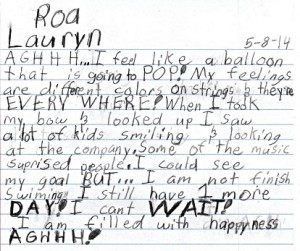 Roa
Lauryn
5-8-14
AGHHH...I feel like a balloon
that is going to POP! My feelings
are different colors on strings & they're
EVERY WHERE! When I took
my bow & looked up I saw
a lot of kids smiling & looking
at the company. Some of the music
suprised people. I could see
my goal BUT... I am not finish
swiming I still have 1 more
DAY! I cant WAIT!
I am filled with happyness
AGHHH!